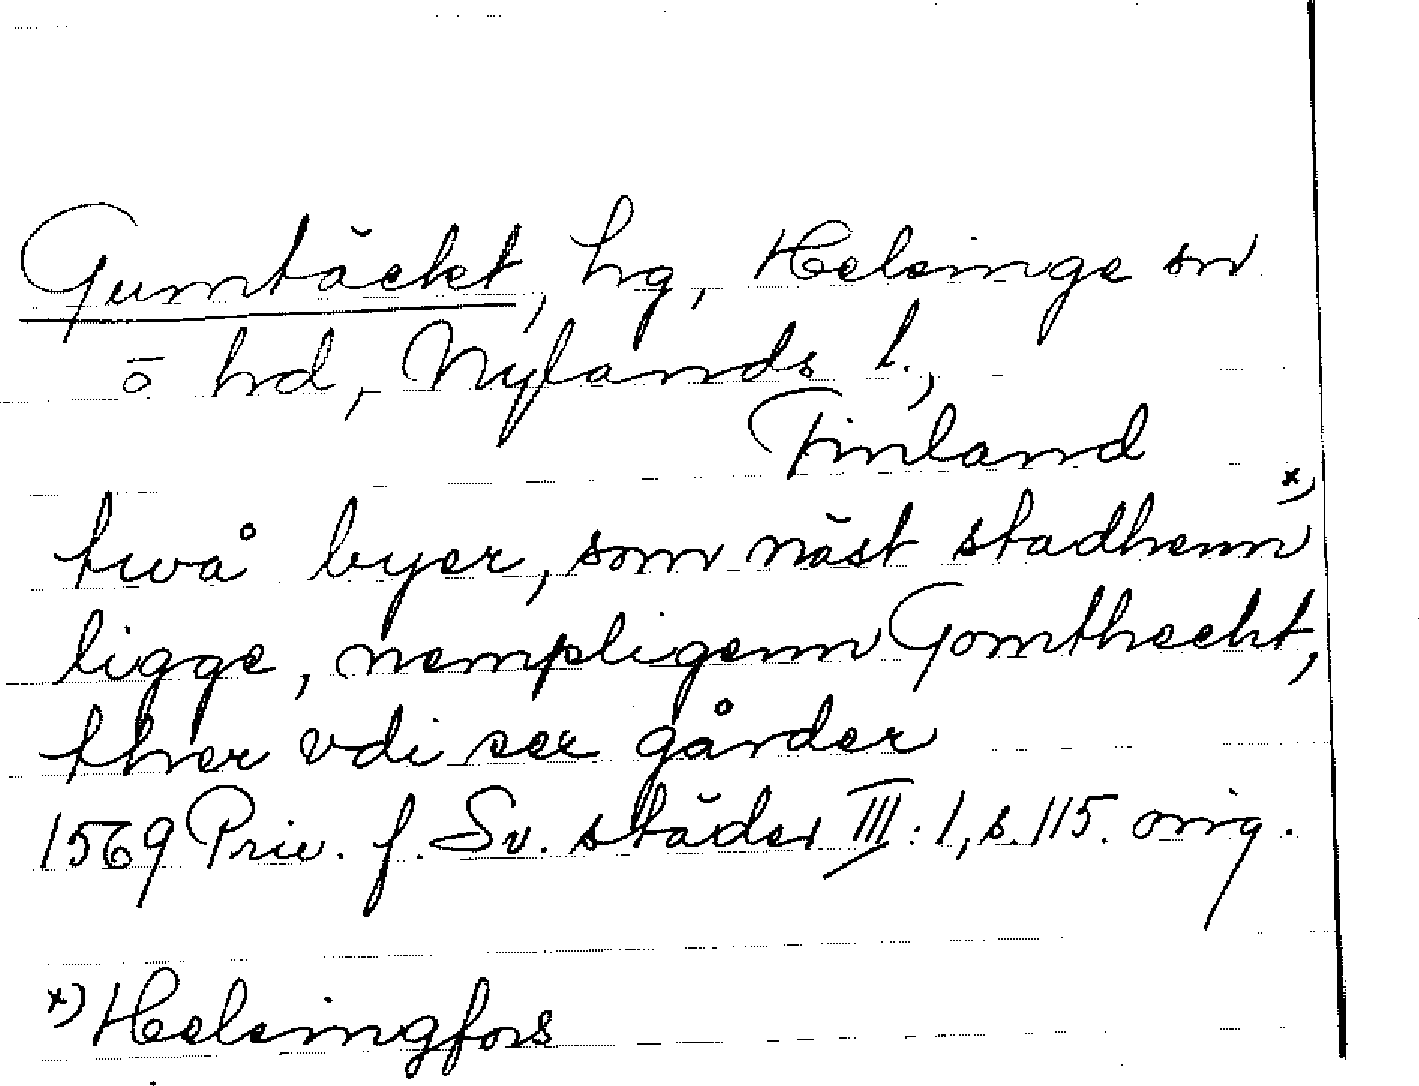 Gumtäckt, hg, Helsinge sn
o hd, Nylands l.,
Finland
twå byer, som näst stadhenn x)
ligge, nempligenn Gomthecht,
ther vdi sex gårder
1569 Priv. f. Sv. städer III: 1, s. 115. orig.
x) Helsingfors